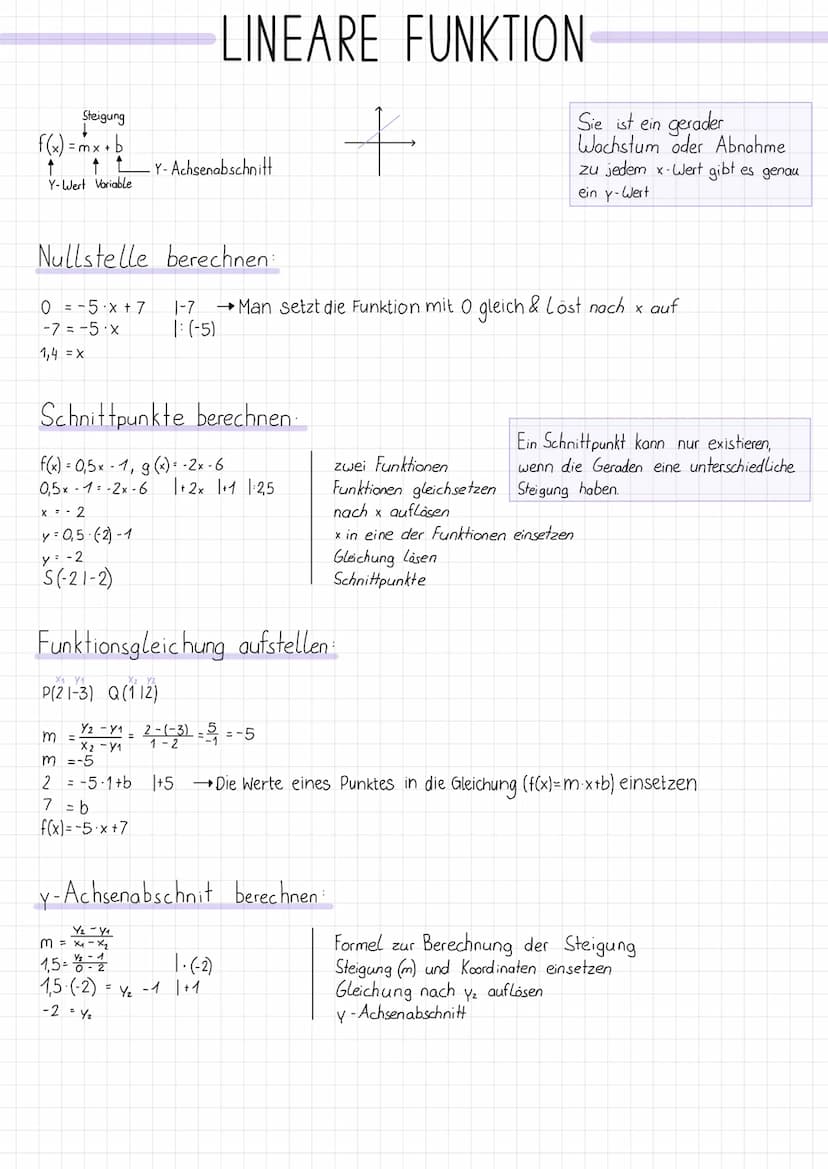 LINEARE FUNKTION
Steigung
f(x) = mx + b
Y-Achsenabschnitt
Y-Wert Variable
Sie ist ein gerader
Wachstum oder Abnahme
zu jedem x-Wert gibt es genau
ein y-Wert
Nullstelle berechnen:
0 = -5·x + 7 |-7 → Man setzt die Funktion mit 0 gleich & Löst nach x auf
-7 = -5·x |: (-5)
1,4 = x
Schnittpunkte berechnen:
Ein Schnittpunkt kann nur existieren,
wenn die Geraden eine unterschiedliche
Steigung haben.
f(x) = 0,5x - 1, g(x) = -2x - 6 zwei Funktionen
0,5x - 1 = -2x - 6 |+2x |+1 |:2,5 Funktionen gleichsetzen
x = -2 nach x auflösen
y = 0,5·(-2) -1 x in eine der Funktionen einsetzen
y = -2 Gleichung lösen
S(-2|-2) Schnittpunkte
Funktionsgleichung aufstellen:
x₁ y₁ x₂ y₂
P(2|-3) Q(1|2)
m = (y₂ - y₁)/(x₂ - y₁) = (2-(-3))/(1-2) = 5/-1 = -5
m = -5
2 = -5·1+b |+5 → Die Werte eines Punktes in die Gleichung (f(x)=m·x+b) einsetzen
7 = b
f(x) = -5·x +7
y-Achsenabschnit berechnen:
m = (y₂ - y₁)/(x₁ - x₂) Formel zur Berechnung der Steigung
1,5 = (y₂ - 1)/(0 - 2) |·(-2) Steigung (m) und Koordinaten einsetzen
1,5·(-2) = y₂ -1 |+1 Gleichung nach y₂ auflösen
-2 = y₂ y-Achsenabschnitt